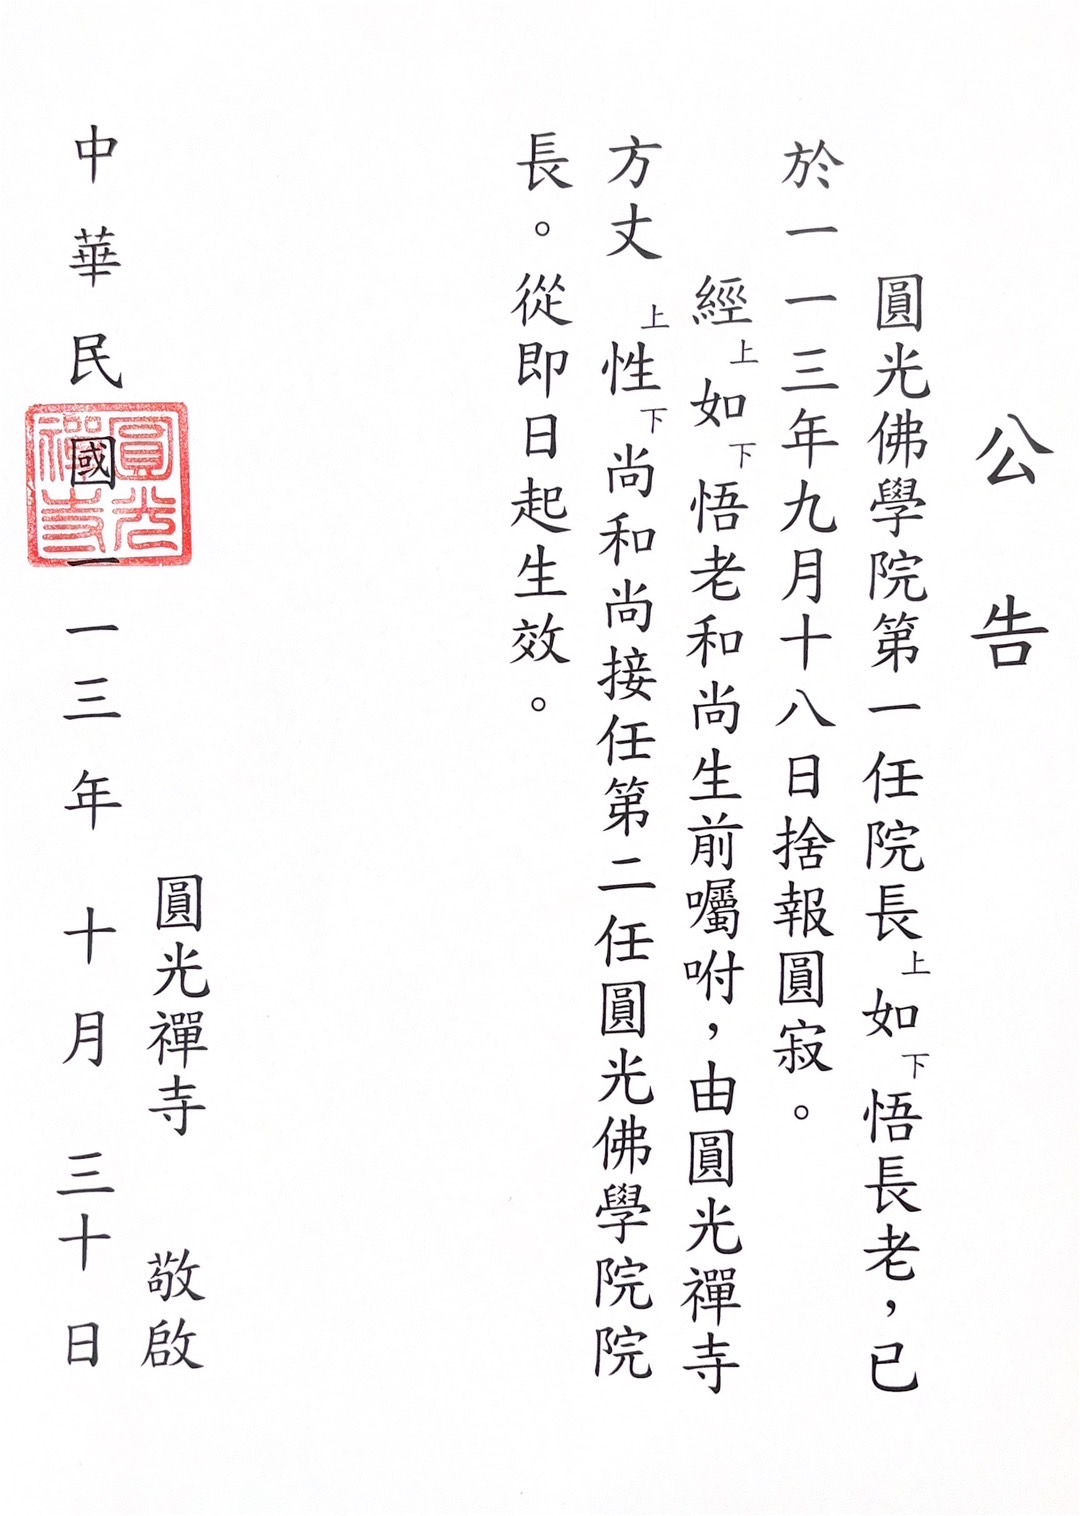 公告
圓光佛學院第一任院長上如下悟長老，已
於一一三年九月十八日捨報圓寂。
經上如下悟老和尚生前囑咐，由圓光禪寺
方丈上性下尚和尚接任第二任圓光佛學院院
長。從即日起生效。
圓光禪寺 敬啟
中華民國一一三年十月三十日
圓光
禪寺